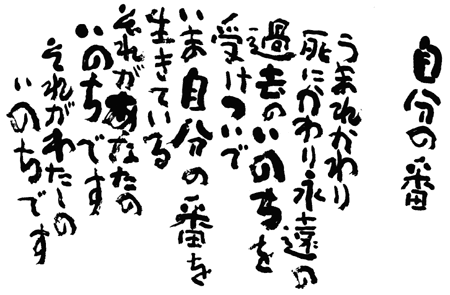 自分の番
うまれかわり
死にかわり永遠の
過去のいのちを
受けついで
いま自分の番を
生きている
それがあなたの
いのちです
それがわたしの
いのちです